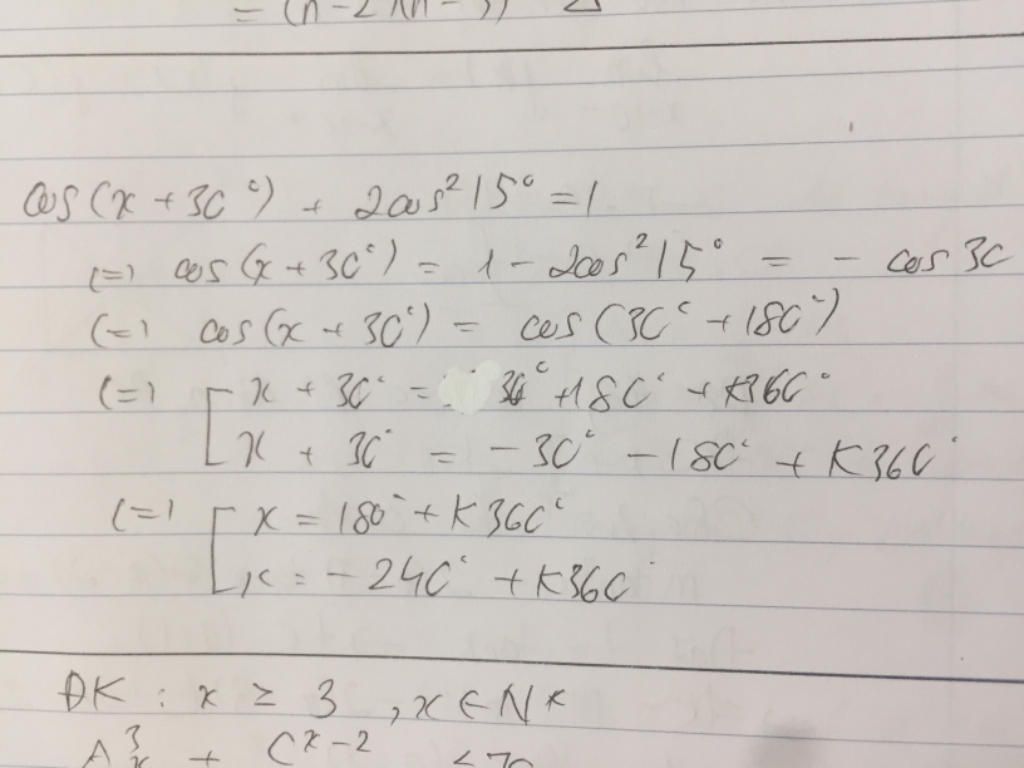 = (n-2)(n-3)
cos(x + 30°) + 2cos²15° = 1
(=) cos(x + 30°) = 1 - 2cos²15° = - cos 30
(=) cos(x + 30°) = cos(30° + 180°)
(=) [ x + 30° = 30° + 180° + K360°
x + 30° = -30° - 180° + K360°
(=) [ x = 180° + K360°
x = -240° + K360°
ĐK : x ≥ 3 , x ∈ N*
A³ₓ + Cˣ⁻²